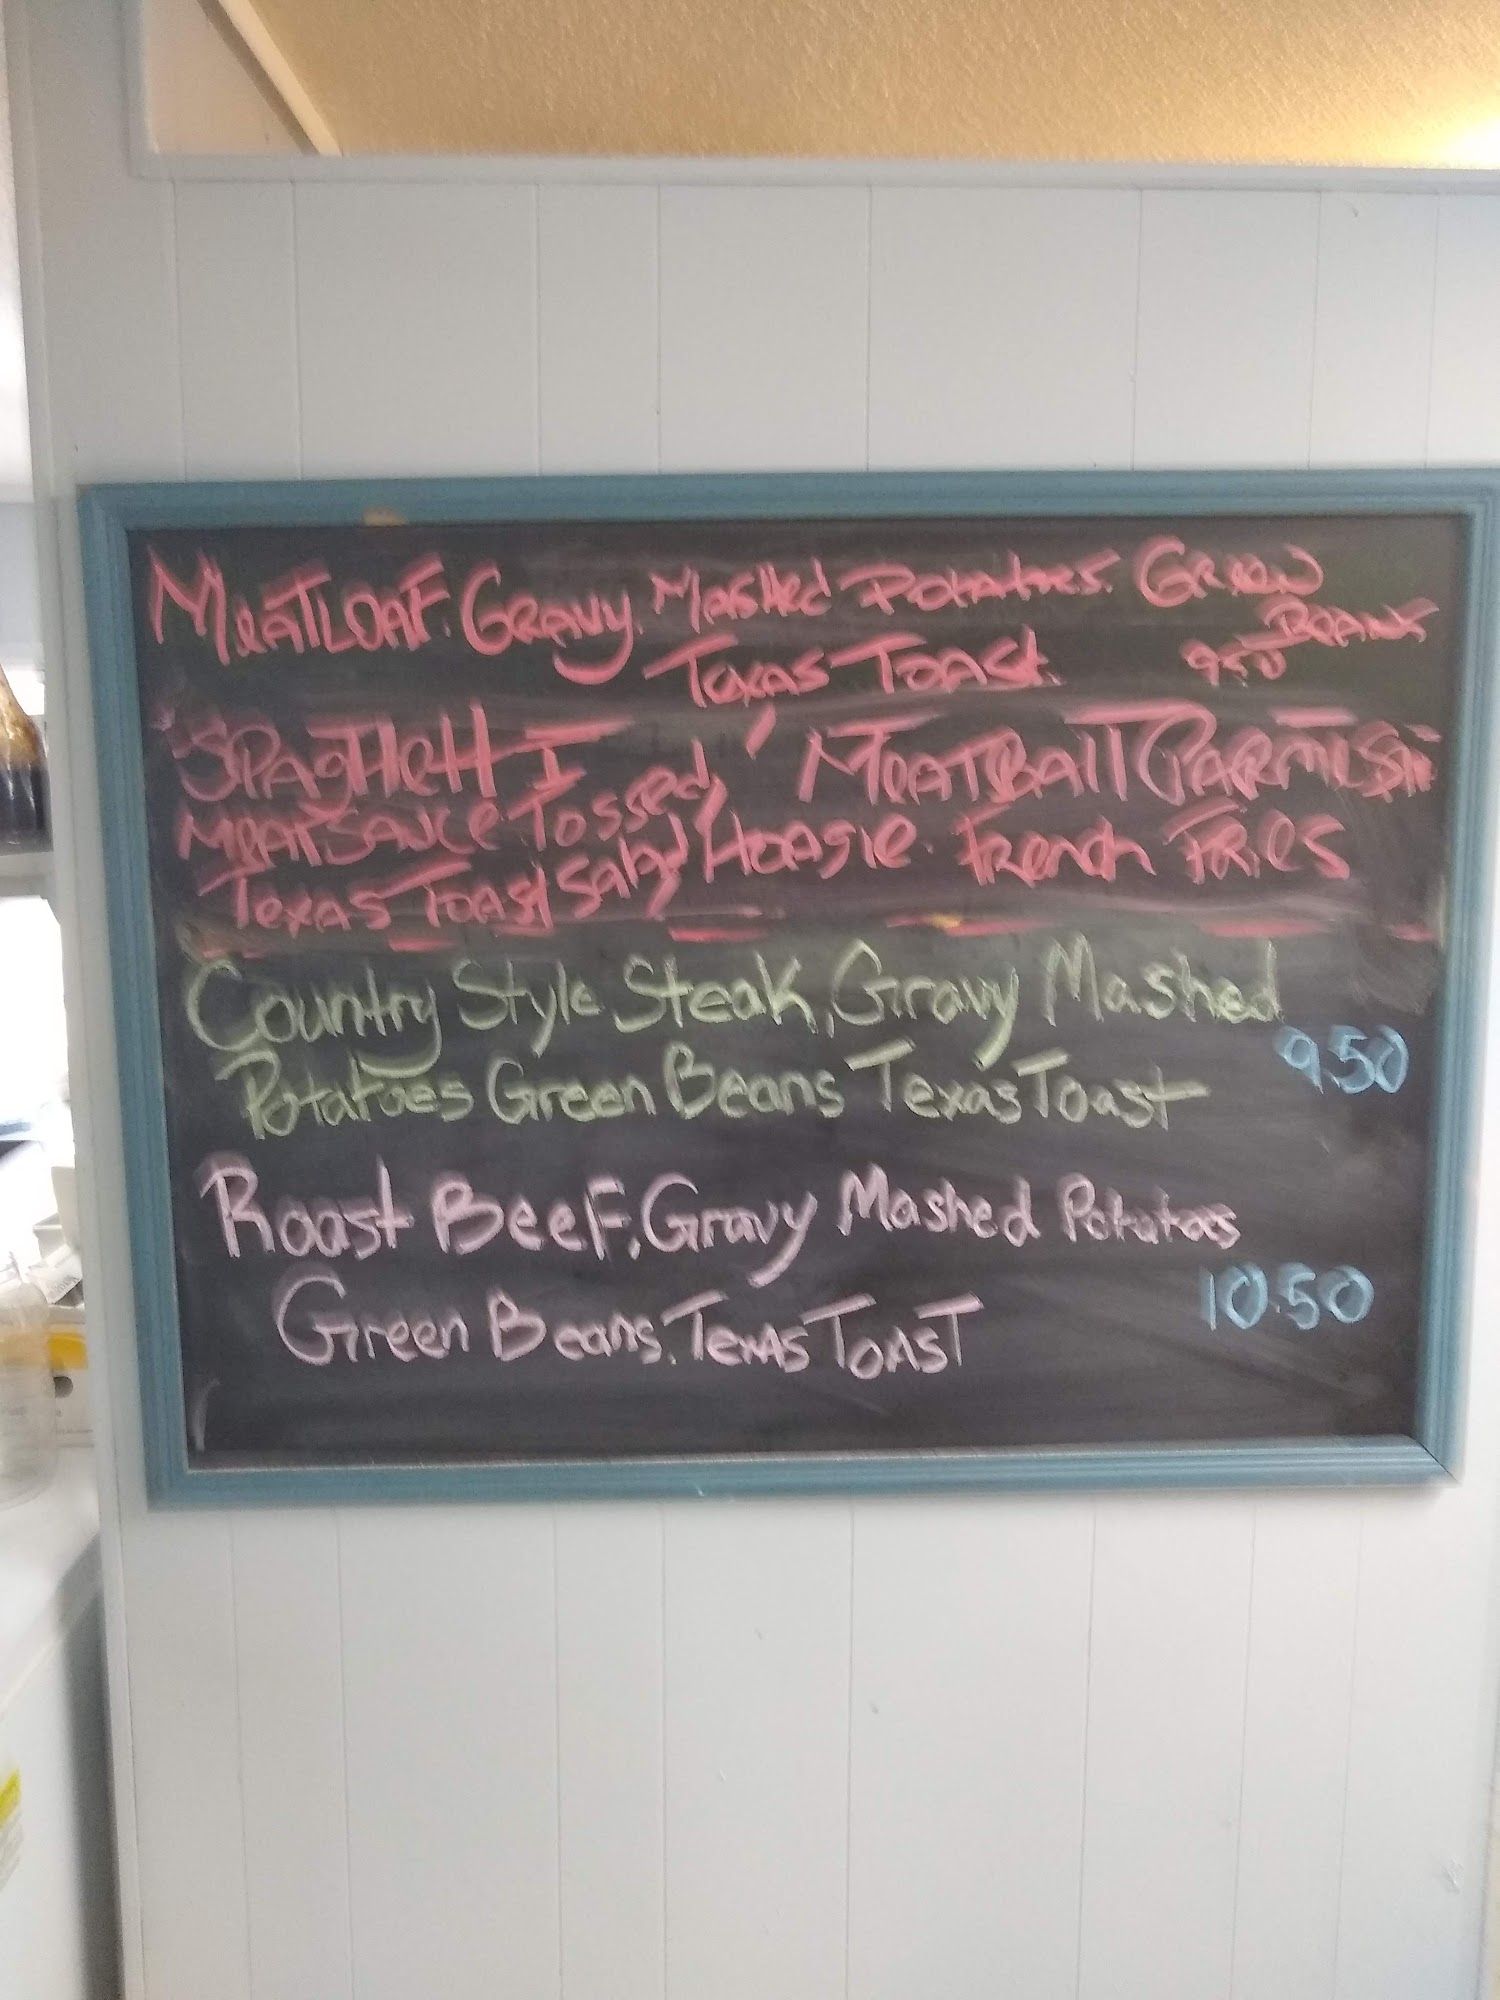 MeatLoaf. Gravy. Mashed Potatoes. Green
Beans
Texas Toast. 9.50
Spaghetti
Meatsauce Tossed
Texas Toast Salad
Meatball Parmisan
Hoagie. French Fries
Country Style Steak, Gravy Mashed
Potatoes Green Beans Texas Toast 9.50
Roast Beef, Gravy Mashed Potatoes
Green Beans. Texas Toast 10.50